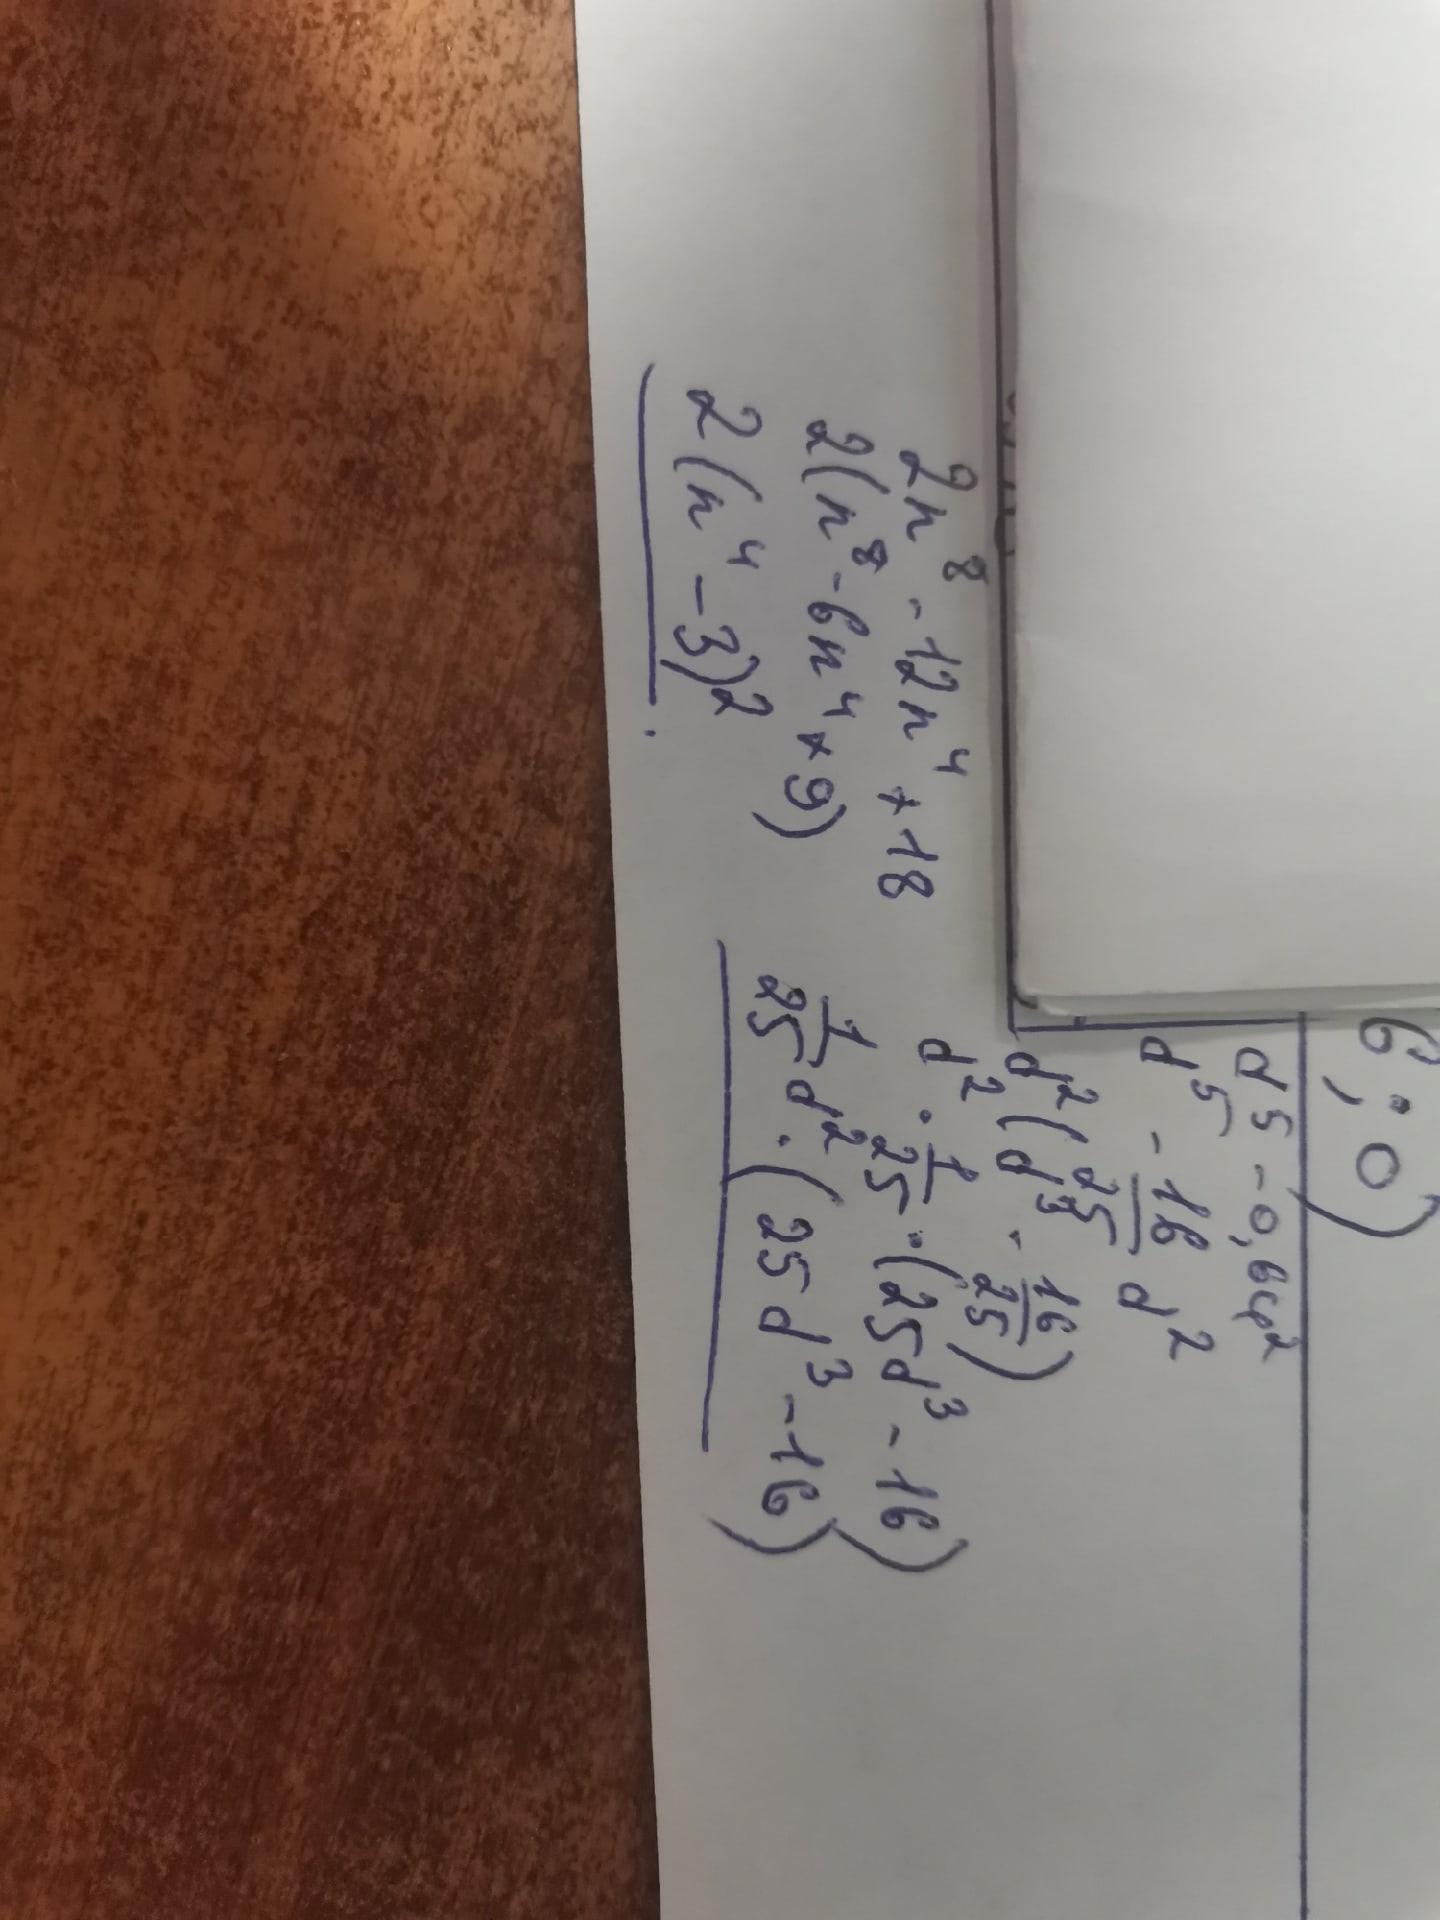 6; 0)
d⁵ - 0,64d²
d⁵ - 16/25 d²
d² (d³ - 16/25)
d² · 1/25 · (25d³ - 16)
1/25 d² · (25d³ - 16)
2n⁸ - 12n⁴ + 18
2(n⁸ - 6n⁴ + 9)
2(n⁴ - 3)²